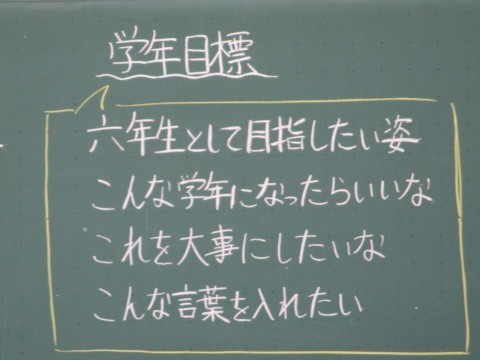 学年目標
六年生として目指したい姿
こんな学年になったらいいな
これを大事にしたいな
こんな言葉を入れたい